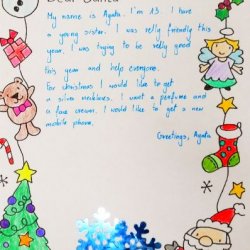 Dear Santa
My name is Agata. I'm 13. I have
a young sister. I was relly friendly this
year. I was trying to be relly good
this year and help everyone.
For christmas I would like to get
a silver necklees. I want a perfume and
a face cream. I would like to get a new
mobile phone.
Greetings, Agata